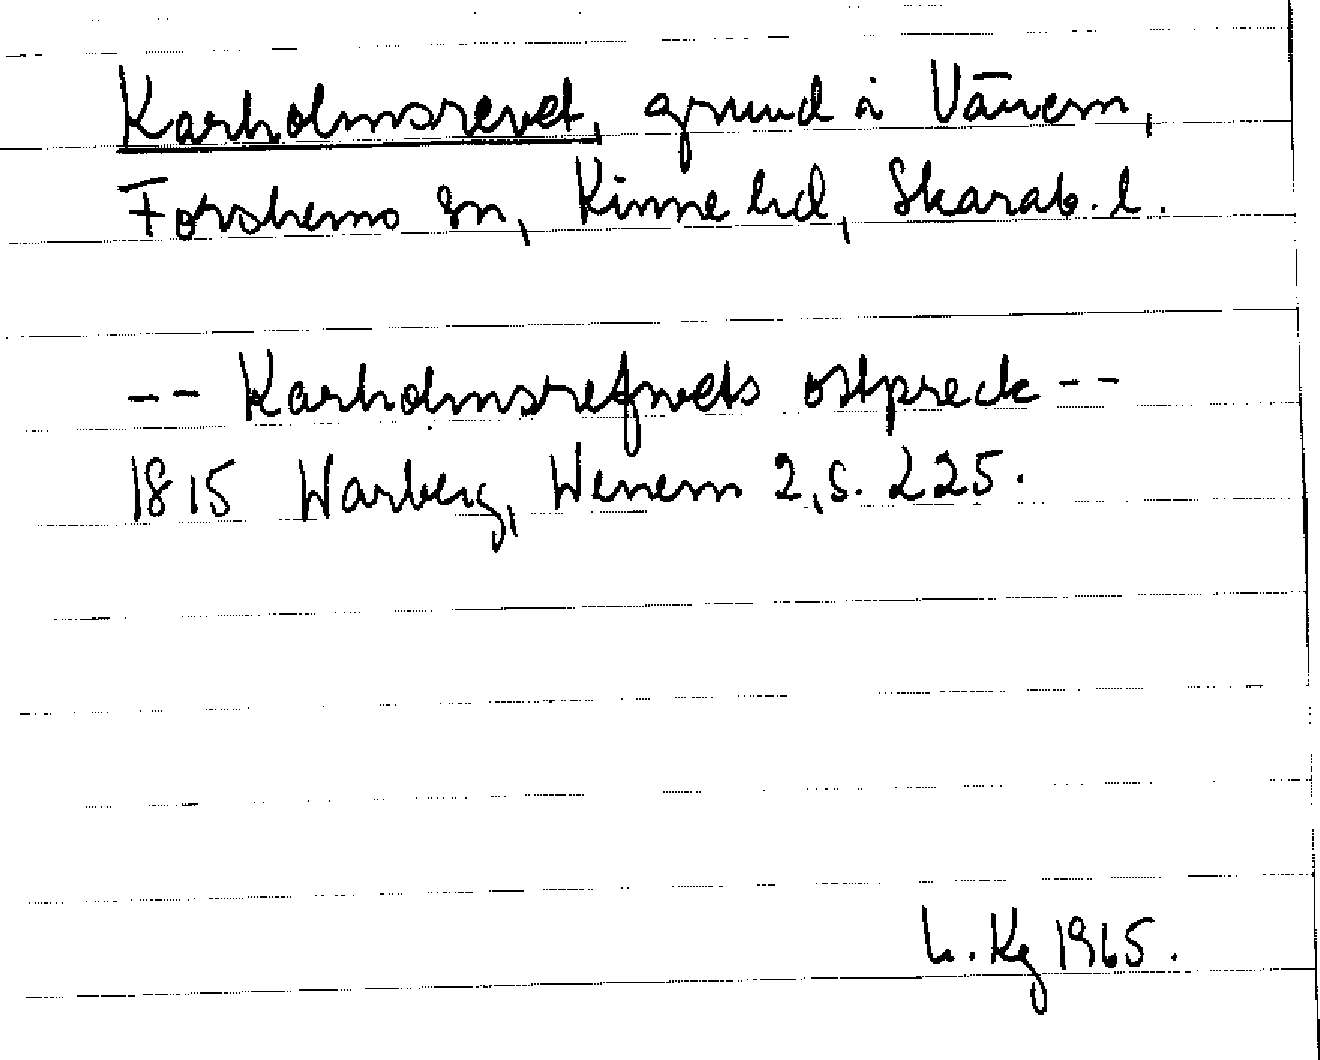 Karholmsrevet, grund i Vänern,
Forshems sn, Kinne hd, Skarab. l.
-- Karholmsrefwets ostpreck --
1815 Warberg, Wenern 2, s. 225.
L. Kg 1965.